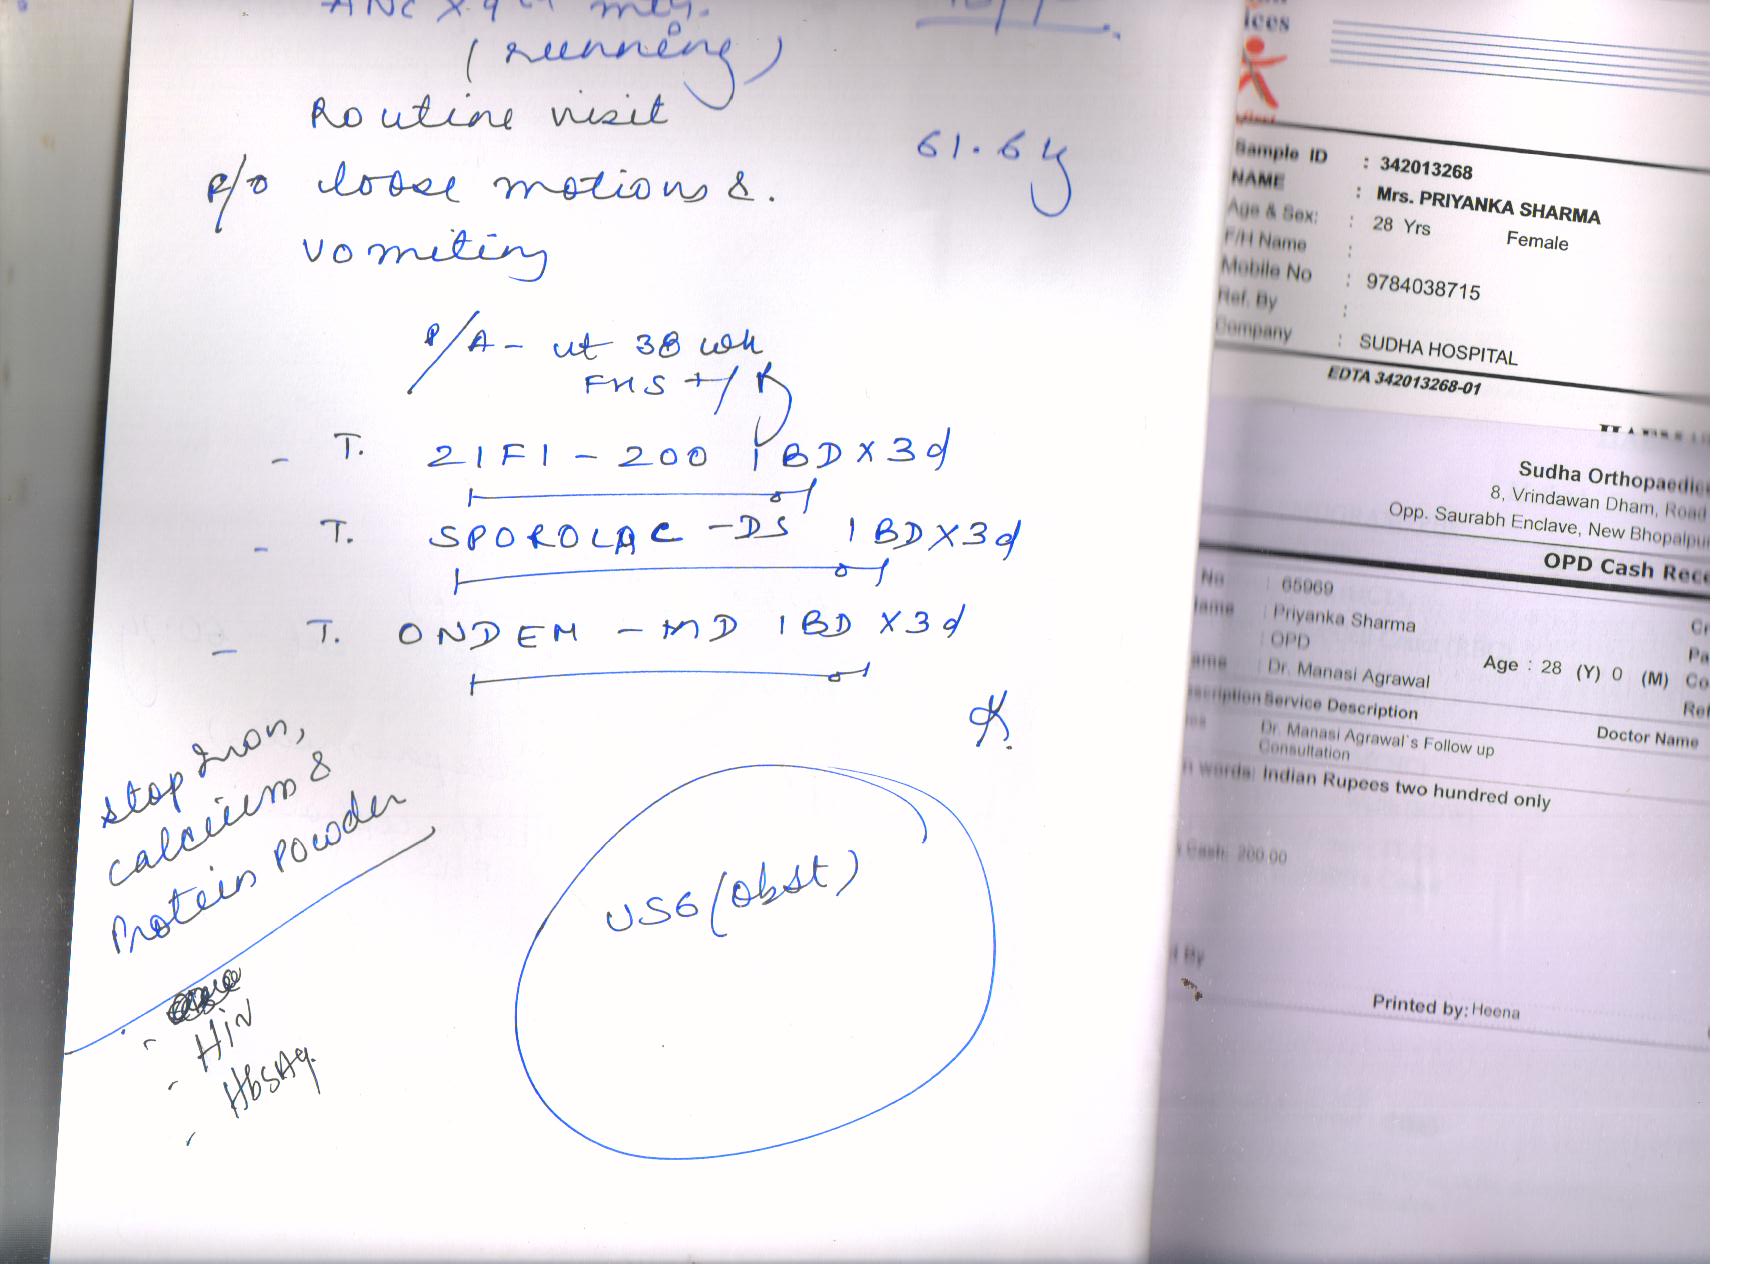 ANC X 9th mth.
(running)
Routine visit
61.6 kg
P/o loose motions &.
vomiting
P/A - ut 38 wk
FHS +/R
- T. ZIFI - 200 1 BD X 3d
- T. SPOROLAC - DS 1 BD X 3d
- T. ONDEM - MD 1 BD X 3d
stop Iron,
calcium &
Protein Powder
USG (Obst)
- HIV
- HbsAg.
ices
Sample ID : 342013268
NAME : Mrs. PRIYANKA SHARMA
Age & Sex: : 28 Yrs Female
F/H Name :
Mobile No : 9784038715
Ref. By :
Company : SUDHA HOSPITAL
EDTA 342013268-01
Sudha Orthopaedic
8, Vrindawan Dham, Road
Opp. Saurabh Enclave, New Bhopalpu
OPD Cash Rece
No : 65969
lame : Priyanka Sharma Cr
: OPD Pa
ame : Dr. Manasi Agrawal Age : 28 (Y) 0 (M) Co
Ref
scription Service Description Doctor Name
Dr. Manasi Agrawal's Follow up
Consultation
n words: Indian Rupees two hundred only
Cash: 200.00
By
Printed by: Heena